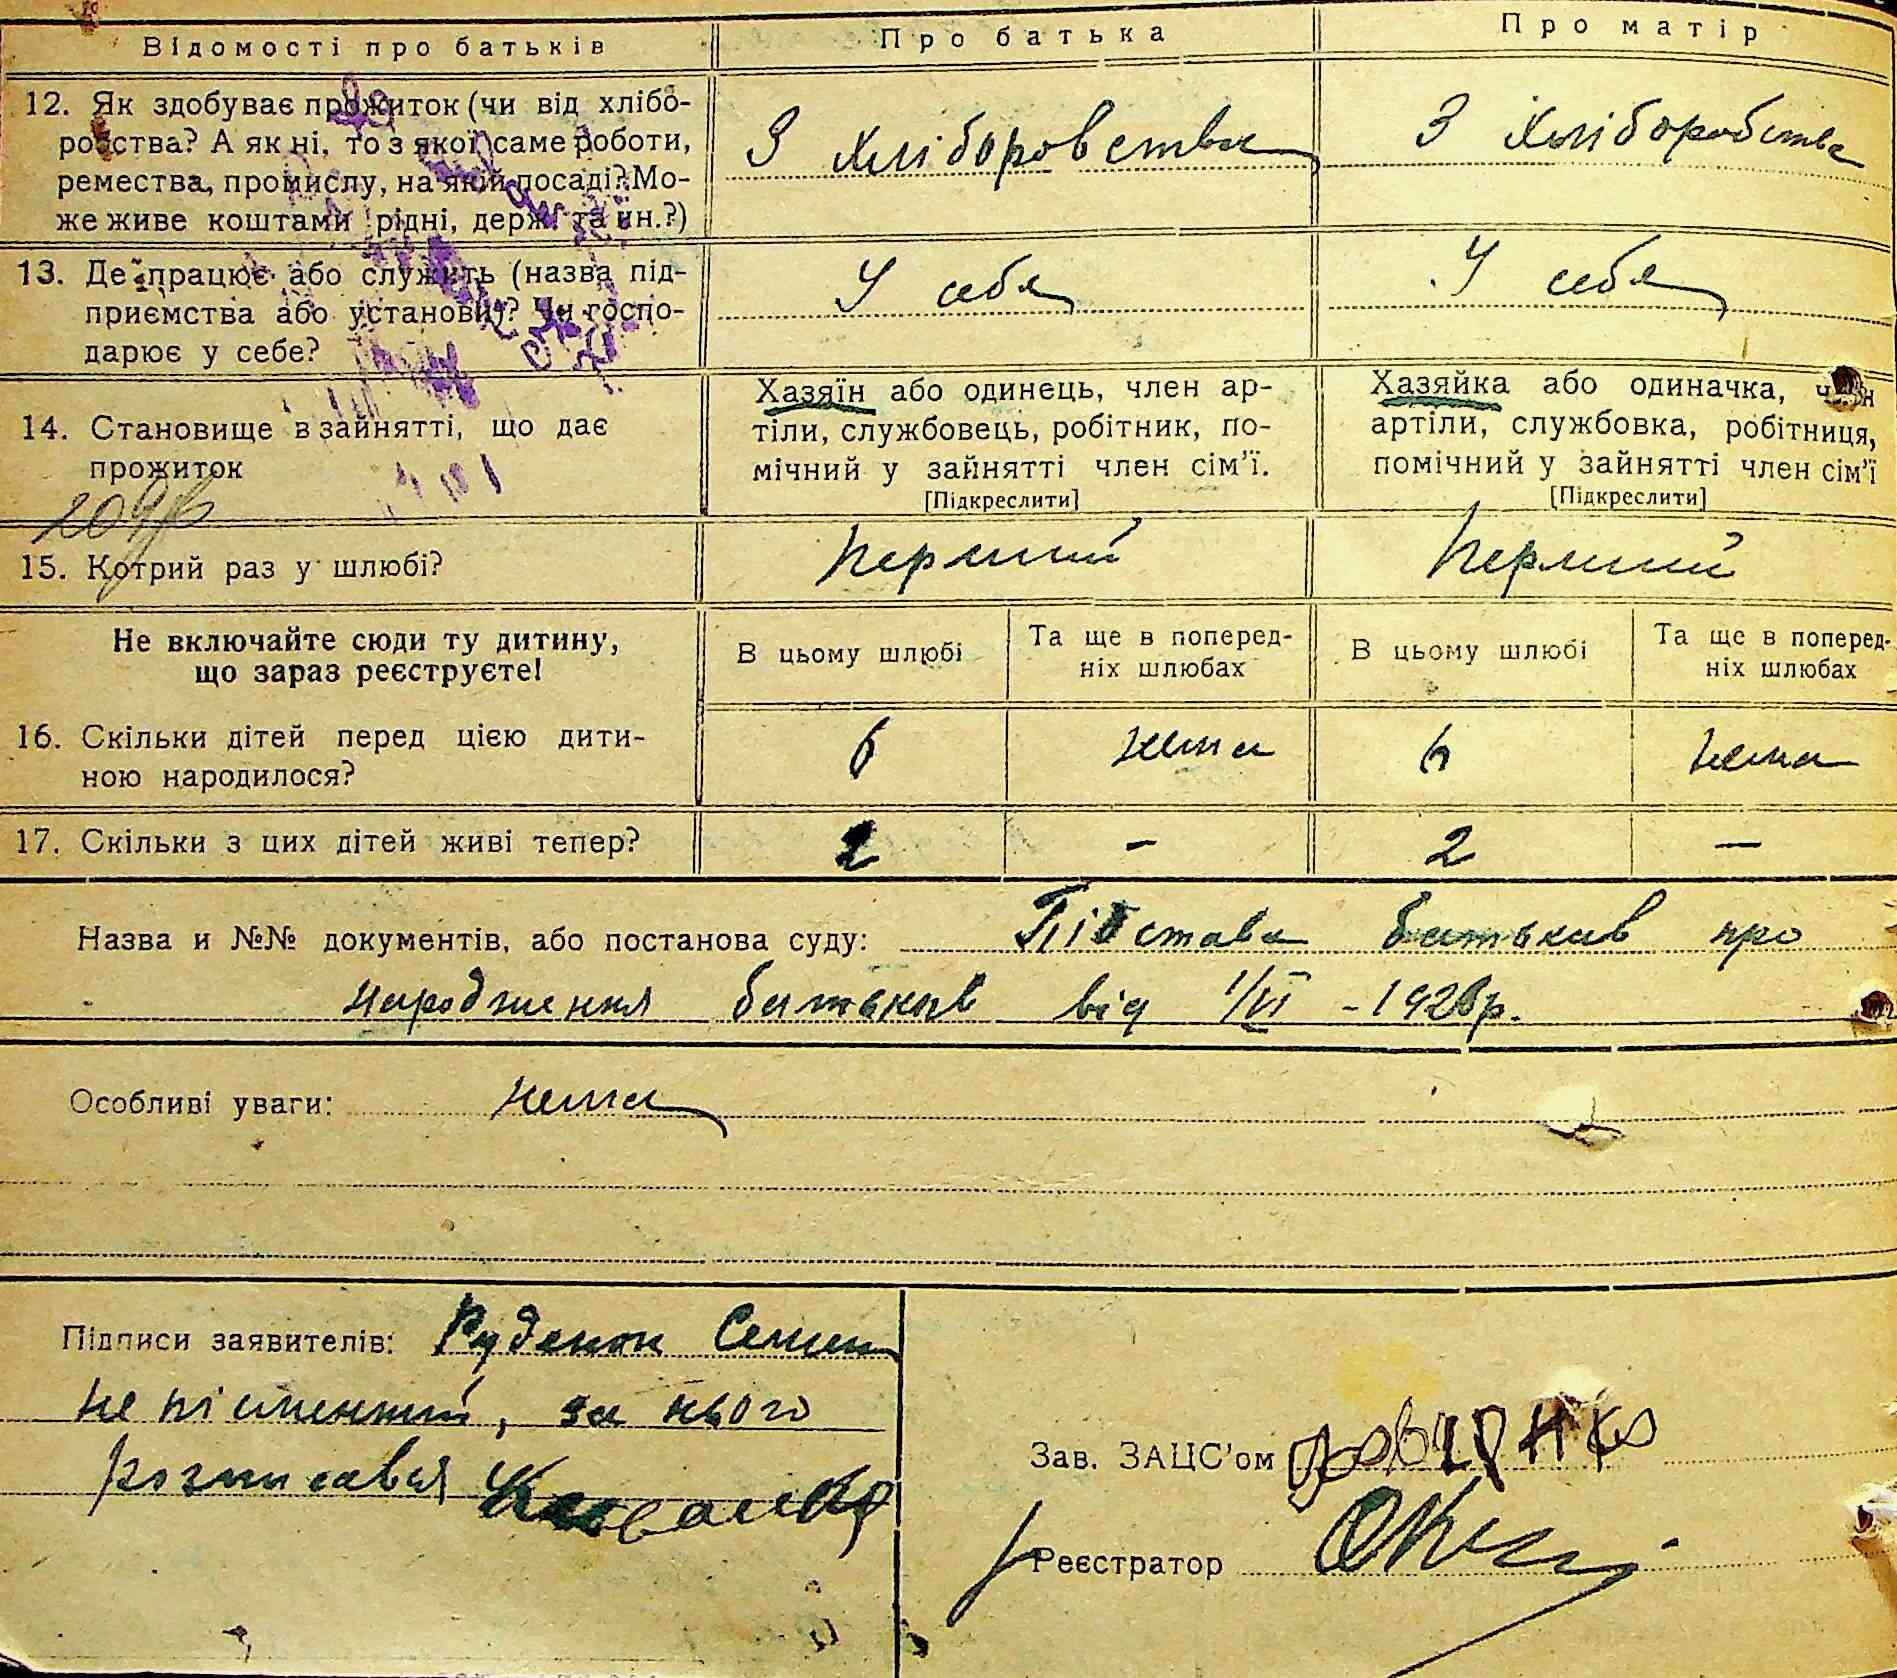 Відомості про батьків
Про батька
Про матір
12. Як здобуває прожиток (чи від хлібо-
робства? А як ні, то з якої саме роботи,
ремества, промислу, на якій посаді? Мо-
же живе коштами рідні, держ. та ин.?)
З хліборовства
З хліборобства
13. Де працює або служить (назва під-
приємства або установи)? Чи госпо-
дарює у себе?
У себя
У себя
14. Становище в зайнятті, що дає
прожиток
Хазяїн або одинець, член ар-
тіли, службовець, робітник, по-
мічний у зайнятті член сім'ї.
[Підкреслити]
Хазяйка або одиначка, член
артіли, службовка, робітниця,
помічний у зайнятті член сім'ї
[Підкреслити]
15. Котрий раз у шлюбі?
Перший
Перший
Не включайте сюди ту дитину,
що зараз реєструєте!
В цьому шлюбі
Та ще в поперед-
ніх шлюбах
В цьому шлюбі
Та ще в поперед-
ніх шлюбах
16. Скільки дітей перед цією дити-
ною народилося?
6
нема
6
нема
17. Скільки з цих дітей живі тепер?
2
–
2
–
Назва и №№ документів, або постанова суду: Підстава батьків про
народження батьків від 1/VI – 1928р.
Особливі уваги: нема
Підписи заявителів: Руденок Семен
не письменний, за нього
розписався
Зав. ЗАЦС'ом
Реєстратор